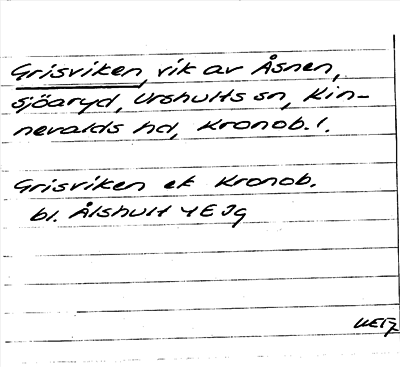 Grisviken, vik av Åsnen,
Sjöaryd, Urshults sn, Kin-
nevalds hd, Kronob. l.
Grisviken ek Kronob.
bl. Älshult 4E Jg